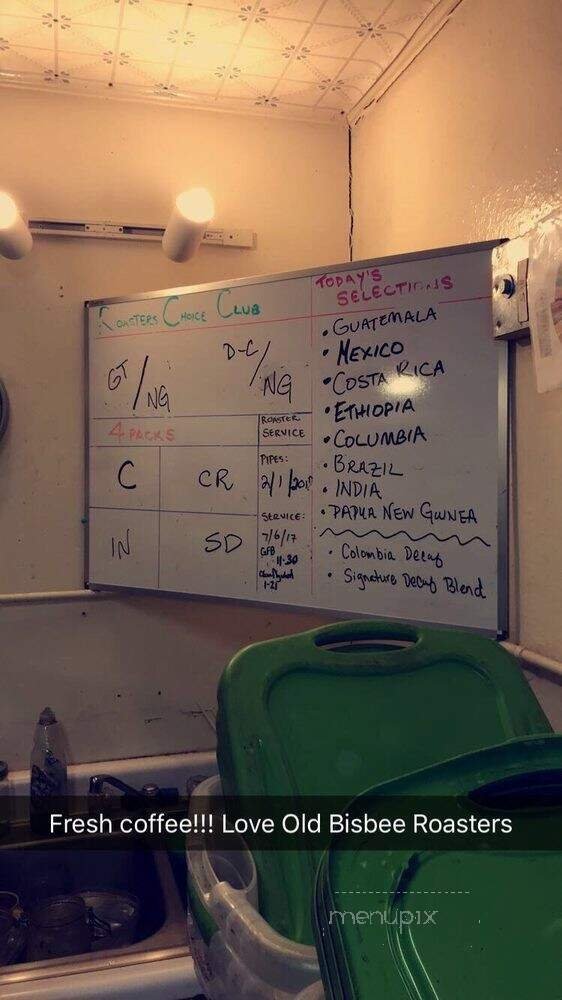 ROASTERS CHOICE CLUB
GT/NG
D-C/NG
4 PACKS
C
CR
IN
SD
ROASTER
SERVICE
PIPES:
2/1/2018
SERVICE:
7/6/17
GFB
11-30
1-21
TODAY'S
SELECTIONS
• GUATEMALA
• MEXICO
• COSTA RICA
• ETHIOPIA
• COLUMBIA
• BRAZIL
• INDIA
• PAPUA NEW GUINEA
• Colombia Decaf
• Signature Decaf Blend
Fresh coffee!!! Love Old Bisbee Roasters
menupix